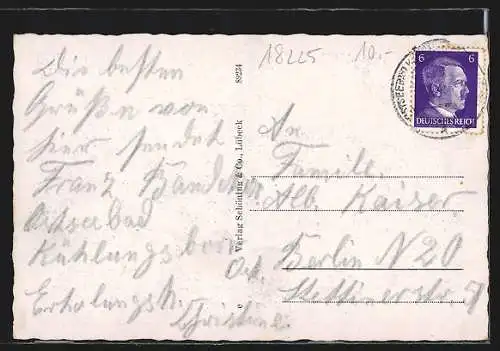 18225 10.-
Die besten
Grüße von
hier sendet
Franz
Ostseebad
Kühlungsborn
Erholungsh.
Christine.
89224
Verlag Schöning & Co., Lübeck
6 6
DEUTSCHES REICH
An
Familie
Alb. Kaiser
Berlin N 20
Stettinerstr.